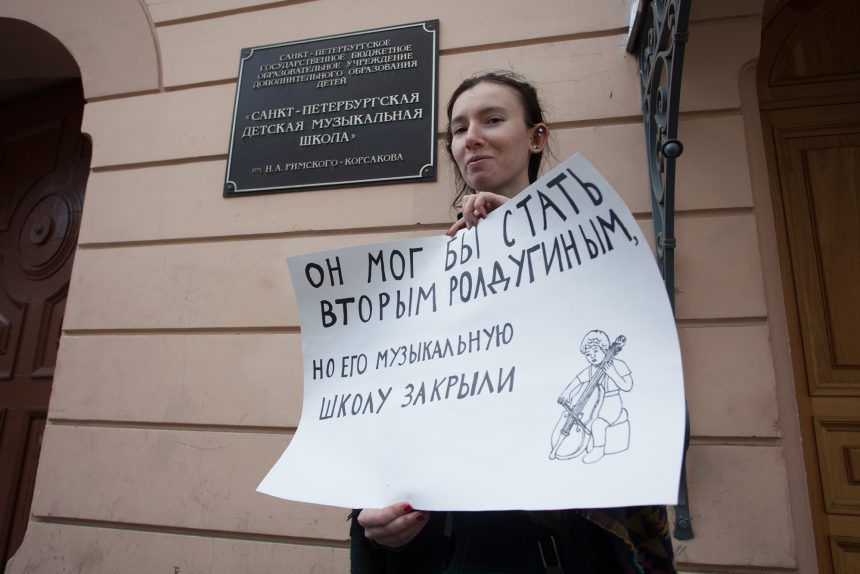 САНКТ-ПЕТЕРБУРГСКОЕ
ГОСУДАРСТВЕННОЕ БЮДЖЕТНОЕ
ОБРАЗОВАТЕЛЬНОЕ УЧРЕЖДЕНИЕ
ДОПОЛНИТЕЛЬНОГО ОБРАЗОВАНИЯ
ДЕТЕЙ
«САНКТ-ПЕТЕРБУРГСКАЯ
ДЕТСКАЯ МУЗЫКАЛЬНАЯ
ШКОЛА»
ИМ. Н.А. РИМСКОГО-КОРСАКОВА
ОН МОГ БЫ СТАТЬ
ВТОРЫМ РОЛДУГИНЫМ,
НО ЕГО МУЗЫКАЛЬНУЮ
ШКОЛУ ЗАКРЫЛИ